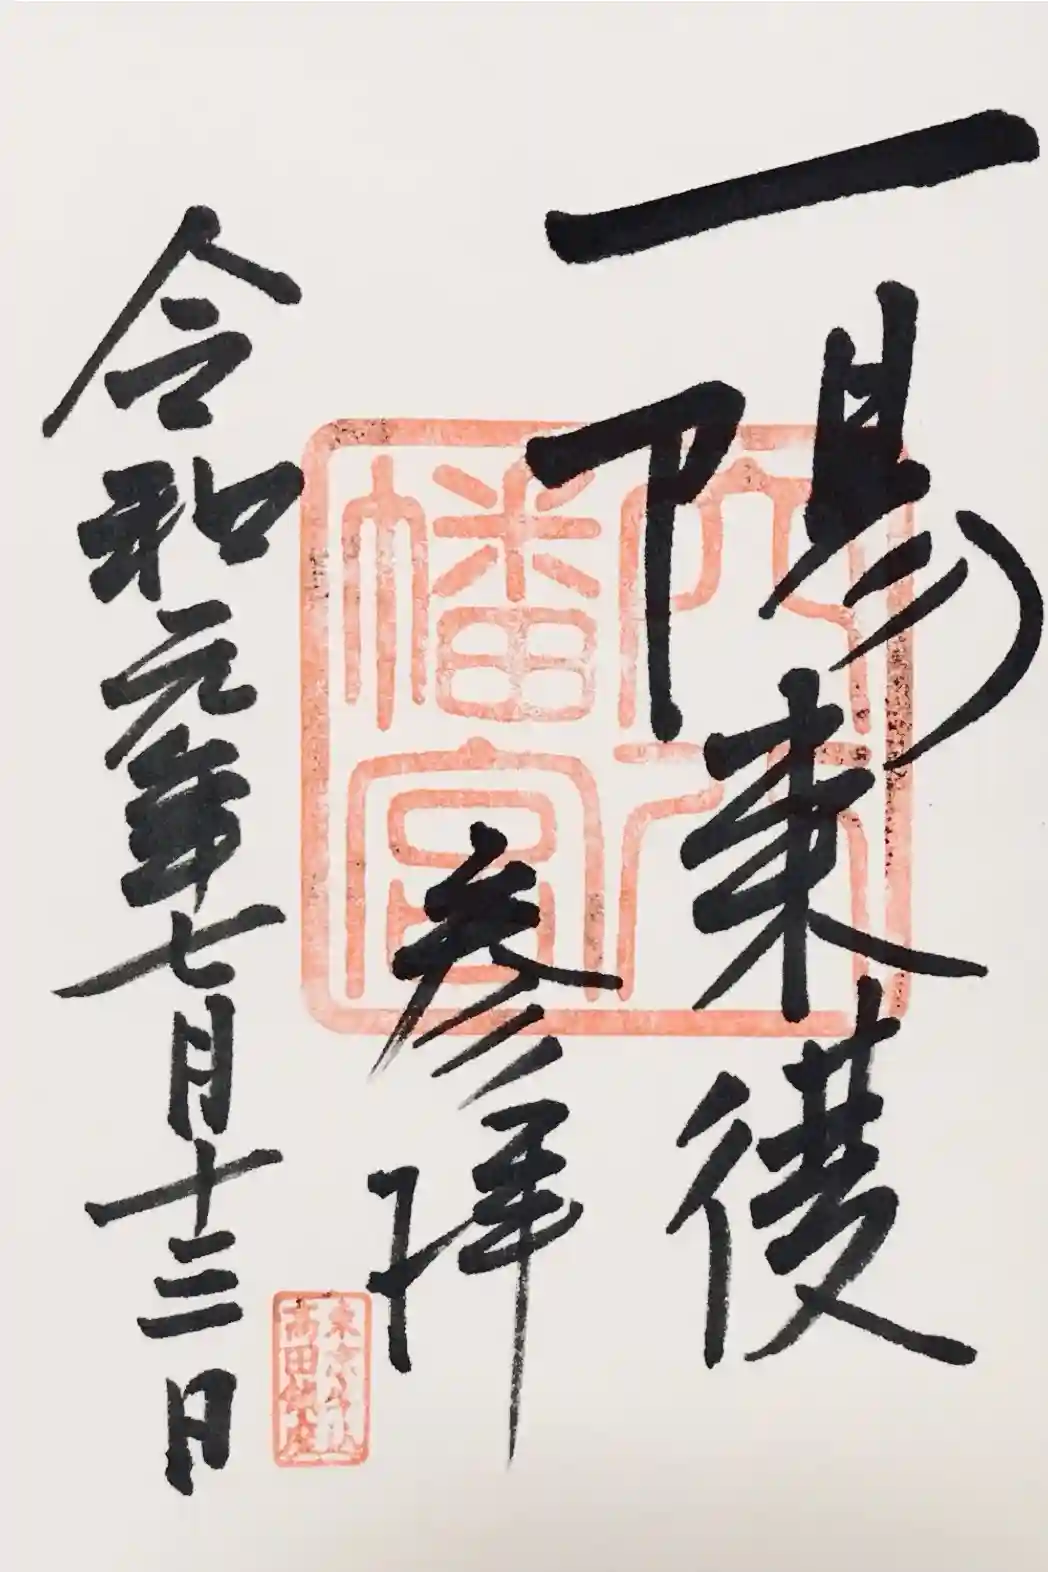 一陽来復
参拝
令和元年七月十三日
穴八
幡宮
東京
高田鎮座